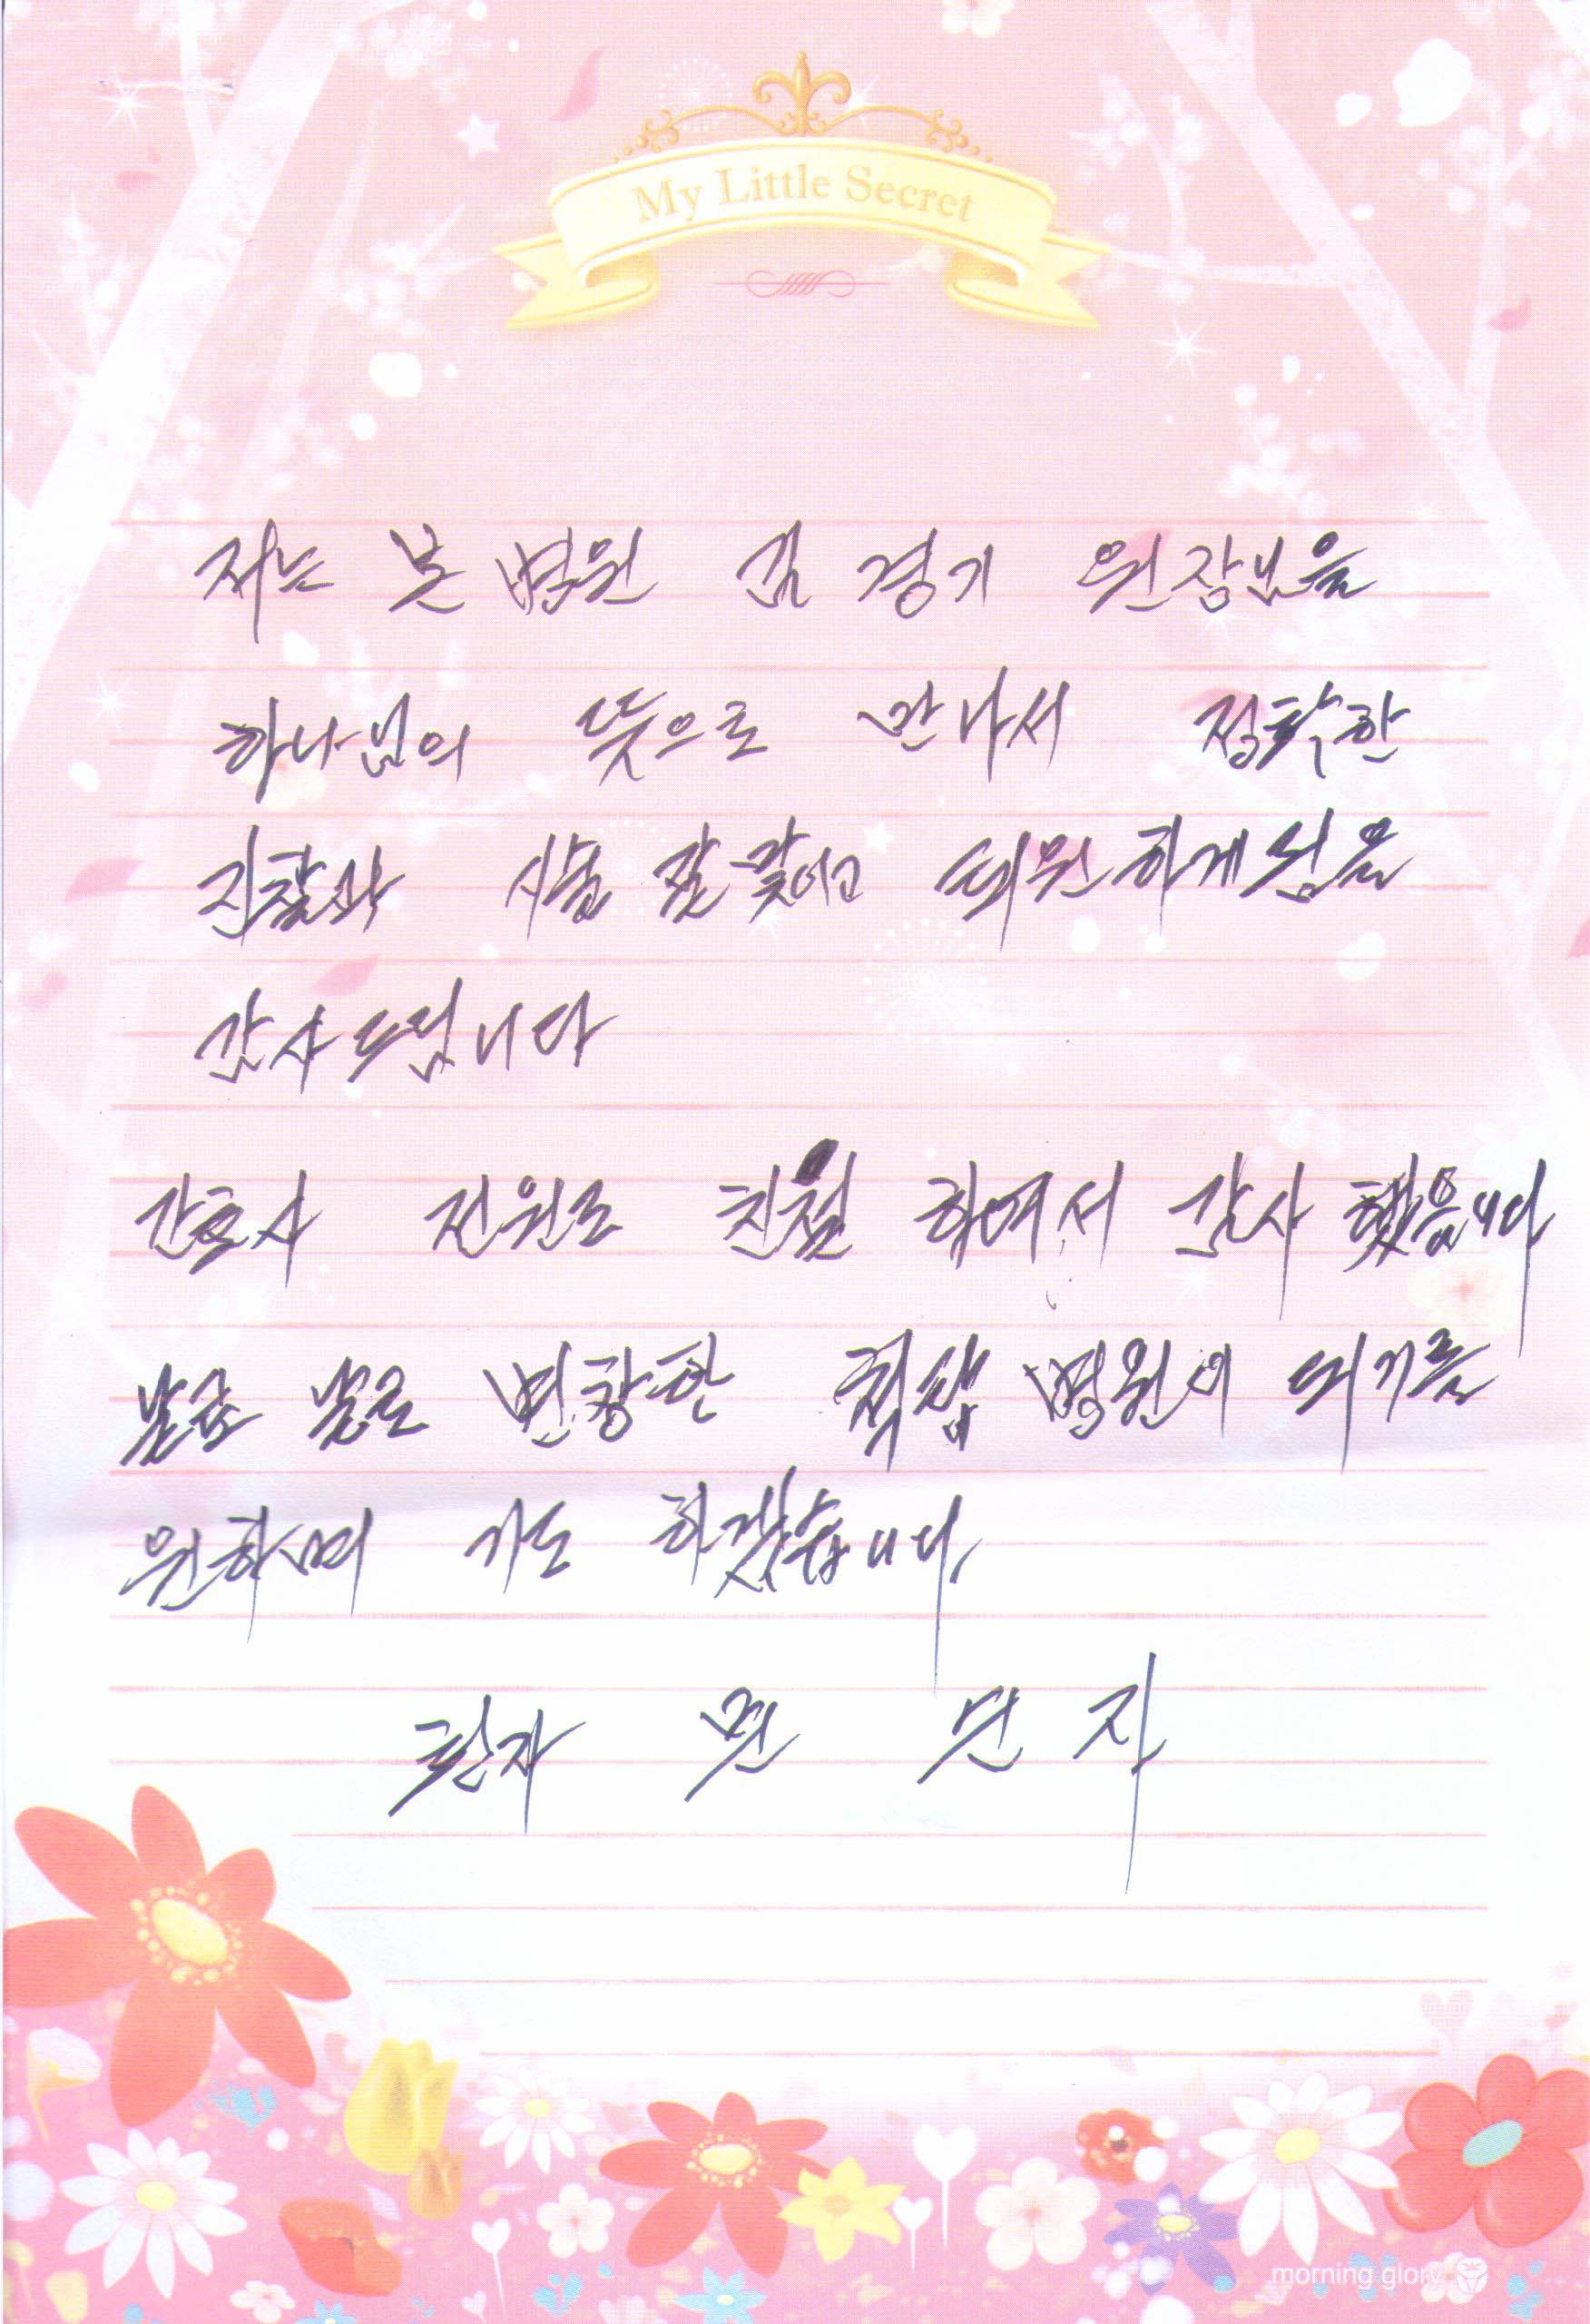 My Little Secret
저는 본 병원 김 경기 원장님을
하나님의 뜻으로 만나서 정확한
진찰과 시술 잘 맞이고 퇴원하게 됨을
감사드립니다
간호사 전원도 친절 하여서 감사 했읍니다
날로 번창한 척병원이 되기를
원하며 기도 하겠습니다.
환자 민 단 자
morning glory